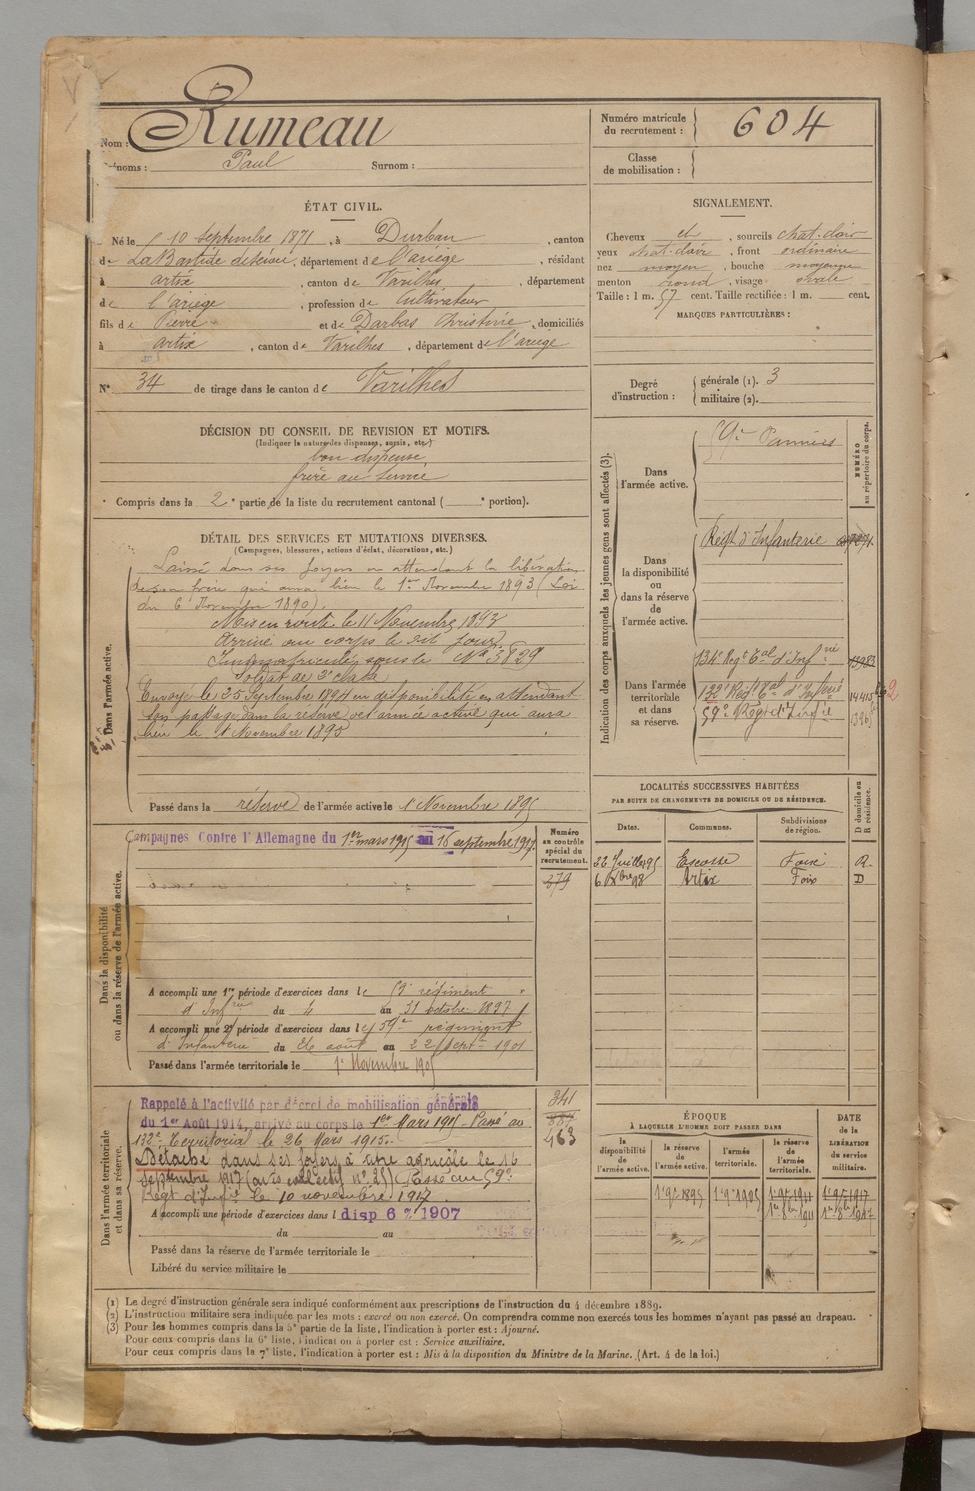 Nom : Rumeau
Prénoms : Paul Surnom :
Numéro matricule du recrutement : 604
Classe de mobilisation :
ÉTAT CIVIL.
Né le 10 Septembre 1871, à Durban, canton
de La Bastide de Sérou, département de l'ariège, résidant
à artix, canton de Varilhes, département
de l'ariège, profession de Cultivateur
fils de Pierre et de Darbas Christine, domiciliés
à artix, canton de Varilhes, département de l'ariège
N° 34 de tirage dans le canton de Varilhes
SIGNALEMENT.
Cheveux et, sourcils chat. clair
yeux chat. clair, front ordinaire
nez moyen, bouche moyenne
menton rond, visage ovale
Taille : 1 m. 57 cent. Taille rectifiée : 1 m. cent.
MARQUES PARTICULIÈRES :
Degré d'instruction : générale (1). 3
militaire (2).
DÉCISION DU CONSEIL DE REVISION ET MOTIFS.
(Indiquer la nature des dispenses, sursis, etc.)
bon dispensé
frère au service
Compris dans la 2e partie de la liste du recrutement cantonal ( e portion).
DÉTAIL DES SERVICES ET MUTATIONS DIVERSES.
(Campagnes, blessures, actions d'éclat, décorations, etc.)
Dans l'armée active.
Laissé dans ses foyers en attendant la libération
de son frère qui aura lieu le 1er Novembre 1893 (Loi
du 6 Novembre 1890).
Mis en route le 11 Novembre 1893
Arrivé au corps le dit jour
Immatriculé sous le N° 3829
Soldat de 2e classe
Envoyé le 25 Septembre 1894 en disponibilité en attendant
son passage dans la réserve de l'armée active qui aura
lieu le 1er Novembre 1895
Passé dans la réserve de l'armée active le 1er Novembre 1895
Indication des corps auxquels les jeunes gens sont affectés (3).
NUMÉRO au répertoire du corps.
Dans l'armée active.
59e Pamiers
Dans la disponibilité ou dans la réserve de l'armée active.
Régt d'Infanterie
Dans l'armée territoriale et dans sa réserve.
134e Régt Eal d'Infrie 13983
132e Régt Eal d'Infrie 14415
59e Régt d'Infrie
LOCALITÉS SUCCESSIVES HABITÉES
PAR SUITE DE CHANGEMENTS DE DOMICILE OU DE RÉSIDENCE.
D domicile ou R résidence.
Dates. Communes. Subdivisions de région.
22 Juillet 95 Escosse Foix R
6 Xbre 98 Artix Foix D
Dans la disponibilité ou dans la réserve de l'armée active.
Campagnes Contre l'Allemagne du 1er mars 1915 au 16 septembre 1917.
Numéro au contrôle spécial du recrutement.
279
A accompli une 1re période d'exercices dans le 59e régiment
d'Infrie du 4 au 31 octobre 1897
A accompli une 2e période d'exercices dans le 59e régiment
d'Infanterie du 26 août au 22 Septre 1901
Passé dans l'armée territoriale le 1er Novembre 1905
Dans l'armée territoriale et dans sa réserve.
Rappelé à l'activité par décret de mobilisation générale
du 1er Août 1914, arrivé au corps le 1er Mars 1915. Passé au
132e Territorial le 26 Mars 1915.
Détaché dans ses foyers à titre agricole le 16
septembre 1917 Passé au 59e
Régt d'Infie le 10 novembre 1917
341
463
A accompli une période d'exercices dans l disp 6 2 1907
du au
Passé dans la réserve de l'armée territoriale le
Libéré du service militaire le
ÉPOQUE
À LAQUELLE L'HOMME DOIT PASSER DANS
DATE de la LIBÉRATION du service militaire.
la disponibilité de l'armée active. la réserve de l'armée active. l'armée territoriale. la réserve de l'armée territoriale.
1er 9bre 1895 1er 9bre 1905 1er 9bre 1911 1er 9bre 1917
1er 8bre 1911 1er 8bre 1917
(1) Le degré d'instruction générale sera indiqué conformément aux prescriptions de l'instruction du 4 décembre 1889.
(2) L'instruction militaire sera indiquée par les mots : exercé ou non exercé. On comprendra comme non exercés tous les hommes n'ayant pas passé au drapeau.
(3) Pour les hommes compris dans la 5e partie de la liste, l'indication à porter est : Ajourné.
Pour ceux compris dans la 6e liste, l'indication à porter est : Service auxiliaire.
Pour ceux compris dans la 7e liste, l'indication à porter est : Mis à la disposition du Ministre de la Marine. (Art. 4 de la loi.)